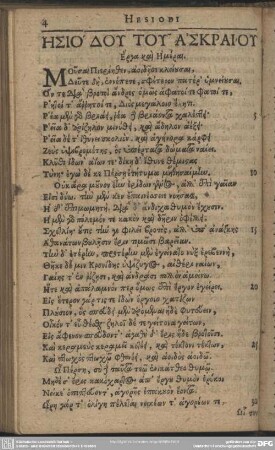 4 HESIODI
ἩΣΙΟΔΟΥ ΤΟΥ ἈΣΚΡΑΙΟΥ
Ἔργα καὶ Ἡμέραι.
ΜΟῦσαι Πιερίηθεν, ἀοιδῇσι κλείουσαι,
Δεῦτε δὴ, ἐννέπετε, σφέτερον πατέρ' ὑμνείουσαι,
Ὅν τε διὰ βροτοὶ ἄνδρες ὁμῶς ἄφατοί τε φατοί τε,
Ῥητοί τ' ἄρρητοί τε, Διὸς μεγάλοιο ἕκητι.
Ῥέα μὲν γὰρ βριάει, ῥέα δὲ βριάοντα χαλέπτει· 5
Ῥεῖα δ' ἀρίζηλον μινύθει, καὶ ἄδηλον ἀέξει·
Ῥεῖα δέ τ' ἰθύνει σκολιὸν, καὶ ἀγήνορα κάρφει
Ζεὺς ὑψιβρεμέτης, ὃς ὑπέρτατα δώματα ναίει.
Κλῦθι ἰδὼν ἀΐων τε· δίκῃ δ' ἴθυνε θέμιστας
Τύνη· ἐγὼ δέ κε Πέρσῃ ἐτήτυμα μυθησαίμην. 10
Οὐκ ἄρα μοῦνον ἔην ἐρίδων γένος, ἀλλ' ἐπὶ γαῖαν
Εἰσὶ δύω, τὴν μέν κεν ἐπαινήσειε νοήσας,
Ἡ δ' ἐπιμωμητή, διὰ δ' ἄνδιχα θυμὸν ἔχουσιν.
Ἡ μὲν γὰρ πόλεμόν τε κακὸν καὶ δῆριν ὀφέλλει,
Σχετλίη· οὔτις τήν γε φιλεῖ βροτὸς, ἀλλ' ὑπ' ἀνάγκης 15
Ἀθανάτων βουλῇσιν ἔριν τιμῶσι βαρεῖαν.
Τὴν δ' ἑτέρην, προτέρην μὲν ἐγείνατο νὺξ ἐρεβεννὴ,
Θῆκε δέ μιν Κρονίδης ὑψίζυγος, αἰθέρι ναίων,
Γαίης τ' ἐν ῥίζῃσι, καὶ ἀνδράσι πολλὸν ἀμείνω.
Ἥτε καὶ ἀπάλαμνόν περ ὅμως ἐπὶ ἔργον ἐγείρει. 20
Εἰς ἕτερον γάρ τίς τε ἰδὼν ἔργοιο χατίζων
Πλούσιον, ὃς σπεύδει μὲν ἀρόμμεναι ἠδὲ φυτεύειν,
Οἶκόν τ' εὖ θέσθαι· ζηλοῖ δέ τε γείτονα γείτων
Εἰς ἄφενον σπεύδοντ'· ἀγαθὴ δ' ἔρις ἥδε βροτοῖσι.
Καὶ κεραμεὺς κεραμεῖ κοτέει, καὶ τέκτονι τέκτων, 25
Καὶ πτωχὸς πτωχῷ φθονέει, καὶ ἀοιδὸς ἀοιδῷ.
Ὦ Πέρση, σὺ δὲ ταῦτα τεῷ ἐνικάτθεο θυμῷ,
Μηδέ σ' ἔρις κακόχαρτος ἀπ' ἔργου θυμὸν ἐρύκοι
Νείκε' ὀπιπτεύοντ', ἀγορῆς ἐπακουὸν ἐόντα.
Ὤρη γάρ τ' ὀλίγη πέλεται νεικέων τ' ἀγορέων τε, 30